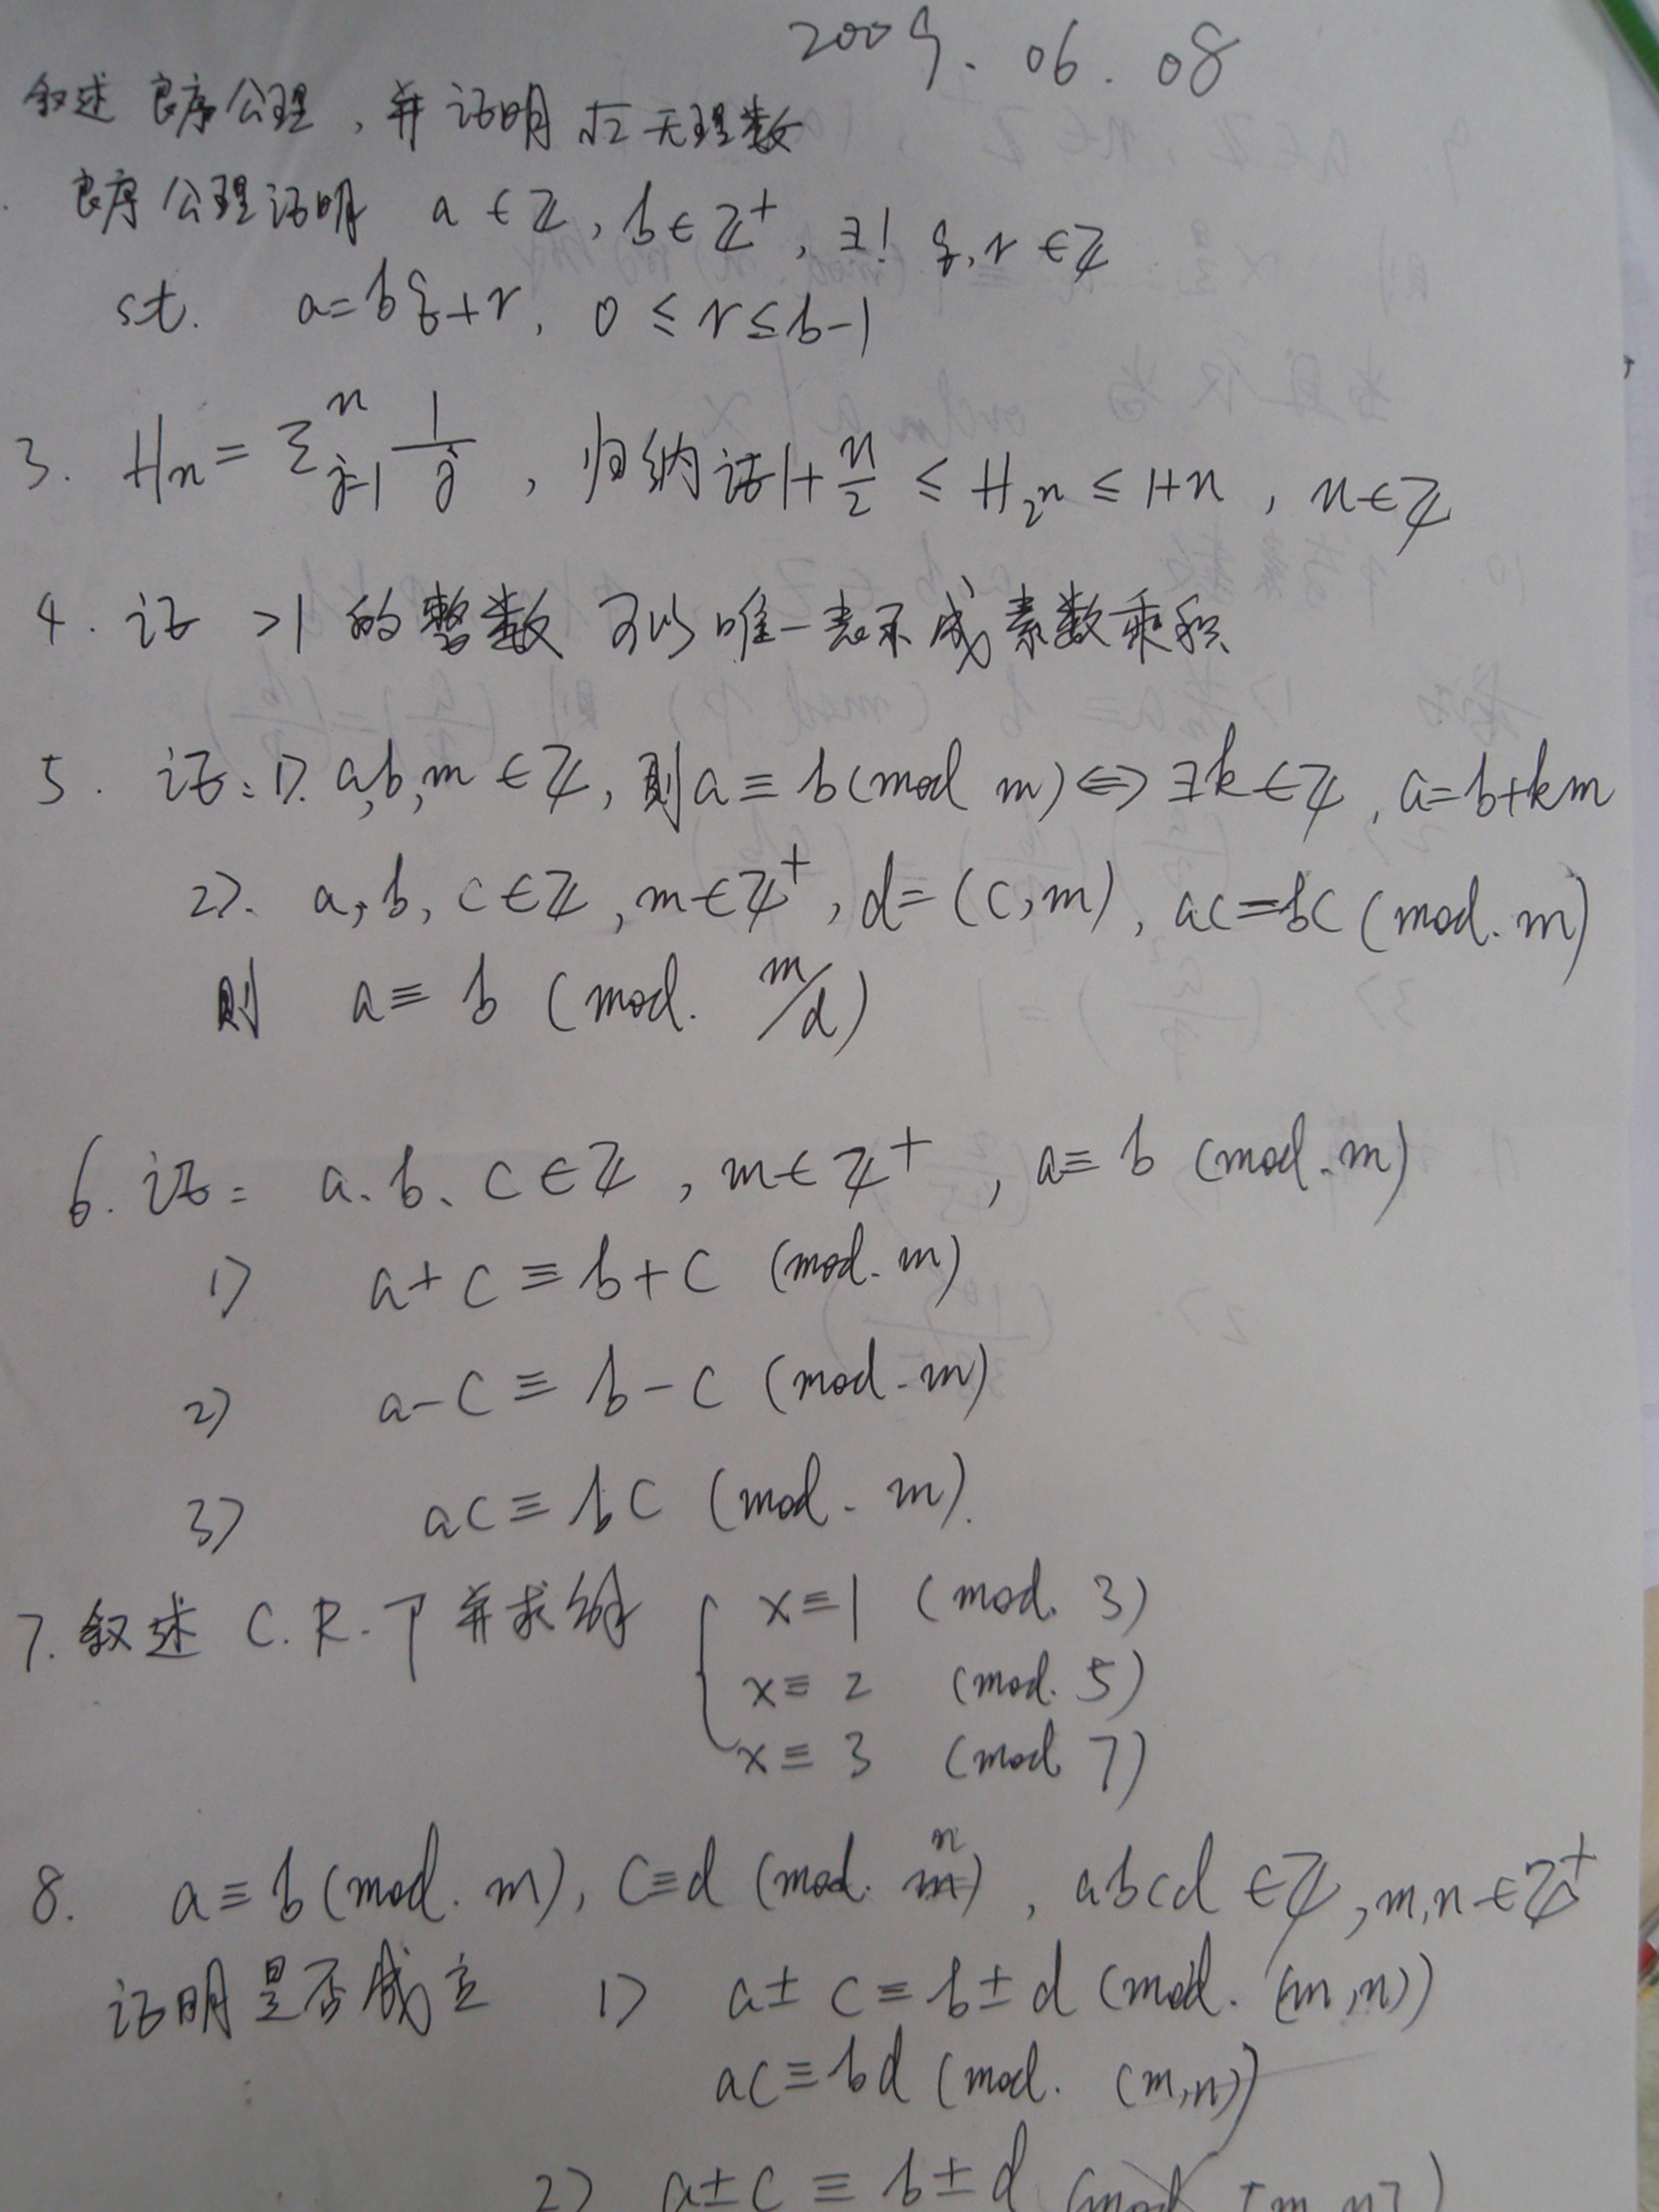 2009. 06. 08
叙述 良序公理, 并证明 √2 无理数
良序公理证明 a ∈ ℤ, b ∈ ℤ⁺, ∃! q, r ∈ ℤ
st. a = bq + r, 0 ≤ r ≤ b-1
3. Hn = Σ_{j=1}^{n} 1/j, 归纳证 1 + n/2 ≤ H_{2^n} ≤ 1+n, n ∈ ℤ
4. 证 >1 的整数 可以唯一表示成素数乘积
5. 证: 1). a,b,m ∈ ℤ, 则 a ≡ b (mod m) ⟺ ∃k ∈ ℤ, a = b+km
2). a, b, c ∈ ℤ, m ∈ ℤ⁺, d = (c, m), ac = bc (mod. m)
则 a ≡ b (mod. m/d)
6. 证: a、b、c ∈ ℤ, m ∈ ℤ⁺, a ≡ b (mod. m)
1) a + c ≡ b + c (mod. m)
2) a - c ≡ b - c (mod. m)
3) ac ≡ bc (mod. m).
7. 叙述 C.R.T 并求解 { x ≡ 1 (mod. 3)
x ≡ 2 (mod. 5)
x ≡ 3 (mod 7)
8. a ≡ b (mod. m), c ≡ d (mod. n), abcd ∈ ℤ, m,n ∈ ℤ⁺
证明是否成立 1) a ± c ≡ b ± d (mod. (m,n))
ac ≡ bd (mod. (m,n))
2) a ± c ≡ b ± d (mod [m,n])